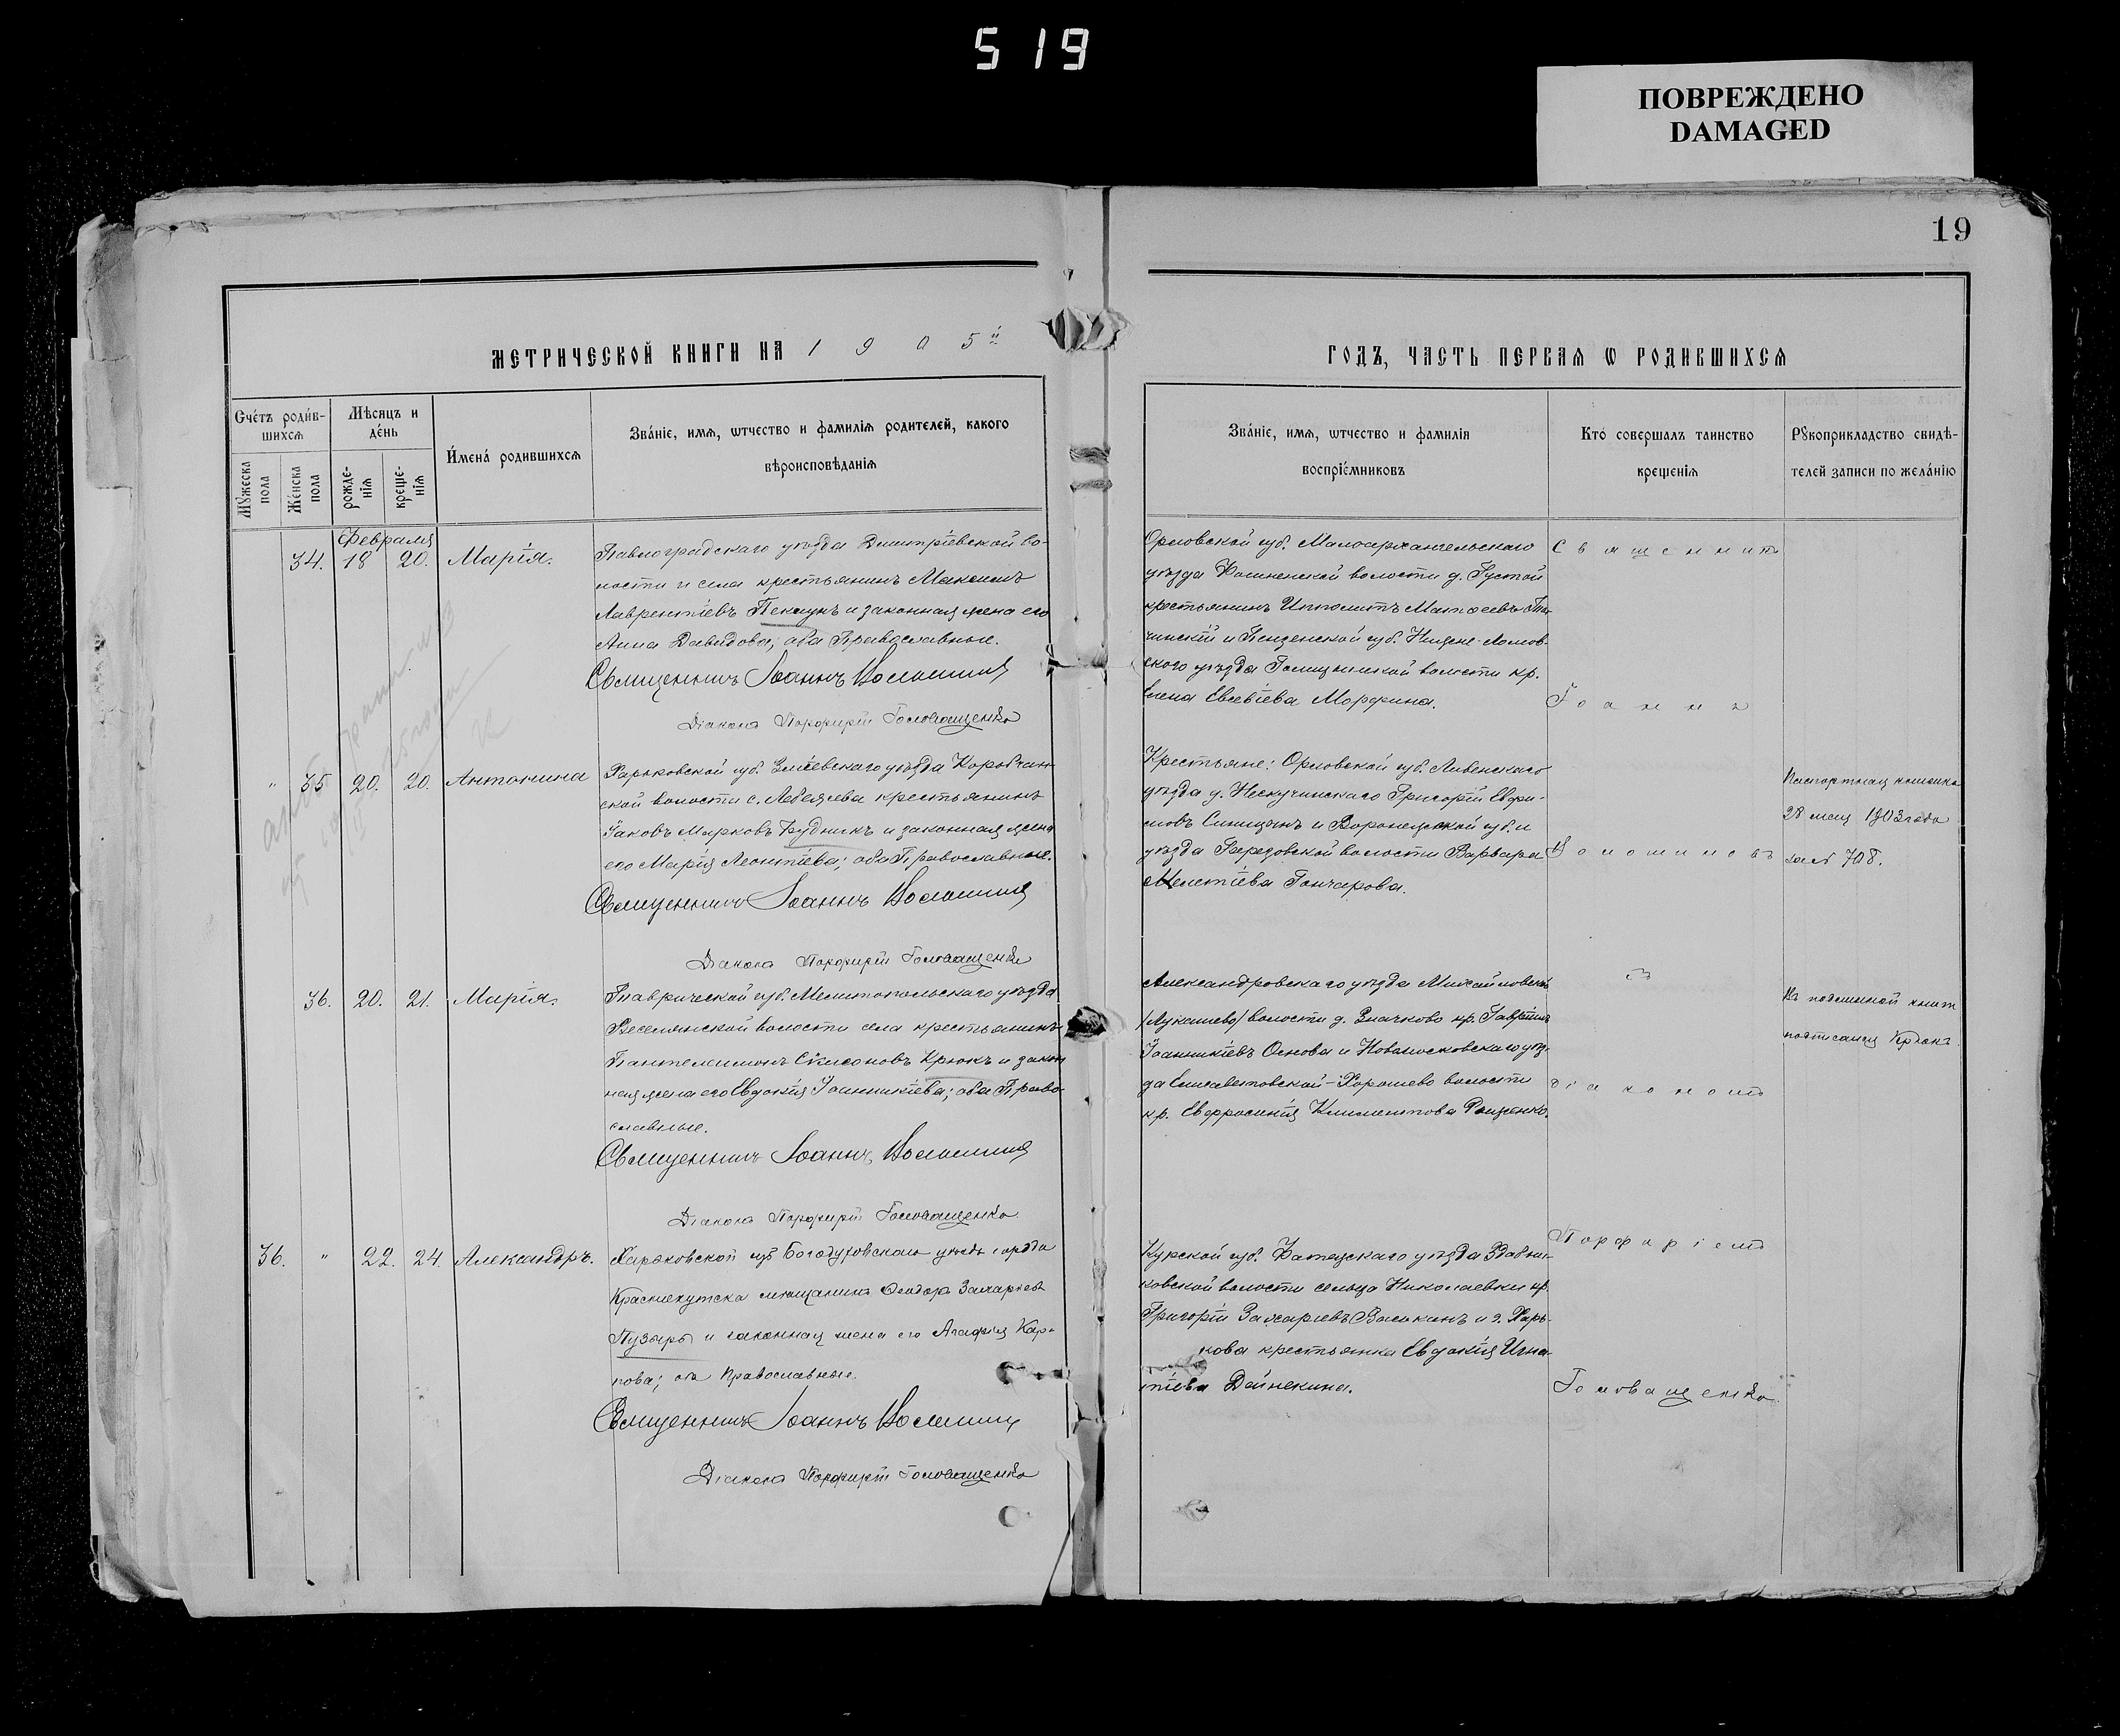 519
ПОВРЕЖДЕНО
DAMAGED
19
МЕТРИЧЕСКОЙ КНИГИ НА 1905й
ГОДЪ, ЧАСТЬ ПЕРВАЯ Ѡ РОДИВШИХСЯ
Счéтъ роди́в-
шихсѧ
Мѣсѧцъ и
дéнь
Мꙋжеска
пола
Жéнска
пола
рожде-
нїѧ
креще-
нїѧ
И́мена́ родившихсѧ
Звáнїе, имѧ, ѿчество и фамилїѧ родителей, какого
вѣроисповѣданїѧ
Звáнїе, имѧ, ѿчество и фамилїѧ
воспрїéмниковъ
Кто́ совершалъ таинство
крещенїѧ
Рꙋкоприкладство свидѣ-
телей записи по желáнїю
Февраля
34. 18 20. Марія.
Павлоградскаго уѣзда Дмитріевской во-
лости и села крестьянинъ Максимъ
Лаврентіевъ Пекаунъ и законная жена его
Анна Давидова; оба Православные.
Священникъ Іоаннъ Волошинъ
Діаконъ Порфирій Головащенко
Орловской губ. Малоархангельскаго
уѣзда волости д. Густой
крестьянинъ Ипполитъ Матөеевъ
чинскій и Пензенской губ. Нижне-Ломов-
скаго уѣзда Голицынской волости кр.
Елена Евсевіева Морфина.
Священникъ
Іоаннъ
" 35 20. 20. Антонина
Харьковской губ. Зміевскаго уѣзда Коробчан-
ской волости с. Лебяжева крестьянинъ
Іаковъ Марковъ Рудникъ и законная жена
его Марія Леонтіева; оба Православные.
Священникъ Іоаннъ Волошинъ
Діаконъ Порфирій Головащенко
Крестьяне: Орловской губ. Ливенскаго
уѣзда д. Нескучинскаго Григорій Евфи-
мовъ Синицынъ и Воронежской губ. и
уѣзда волости Варвара
Мелетіева Гончарова.
Волошиновъ
Паспортная книжка
28 мая 1903 года
за № 708.
36. 20. 21. Марія.
Таврической губ. Мелитопольскаго уѣзда
Веселянской волости села крестьянинъ
Пантелеимонъ Симеоновъ Крюкъ и закон
ная жена его Евдокія Іоанникіева; оба Право-
славные.
Священникъ Іоаннъ Волошинъ
Діаконъ Порфирій Головащенко
Александровскаго уѣзда Михайловской
/Лукашево/ волости д. Значково кр. Гавріилъ
Іоанникіевъ Основа и Новомосковскаго уѣз-
да Елисаветовской-Хорошево волости
кр. Евфросинія Климентова Рященко.
съ
діакономъ
36. " 22. 24. Александръ.
Харьковской губ Богодуховскаго уѣзда города
Краснокутска мѣщанинъ Өеодоръ Захаріевъ
Пузырь и законная жена его Агафія Кар-
пова; оба Православные.
Священникъ Іоаннъ Волошинъ
Діаконъ Порфирій Головащенко
Курской губ. Фатежскаго уѣзда
ковской волости сельца Николаевки кр.
Григорій Захаріевъ Васькинъ и г. Харь-
кова крестьянка Евдокія Игна-
тіева Дайнекина.
Порфиріемъ
Головащенко